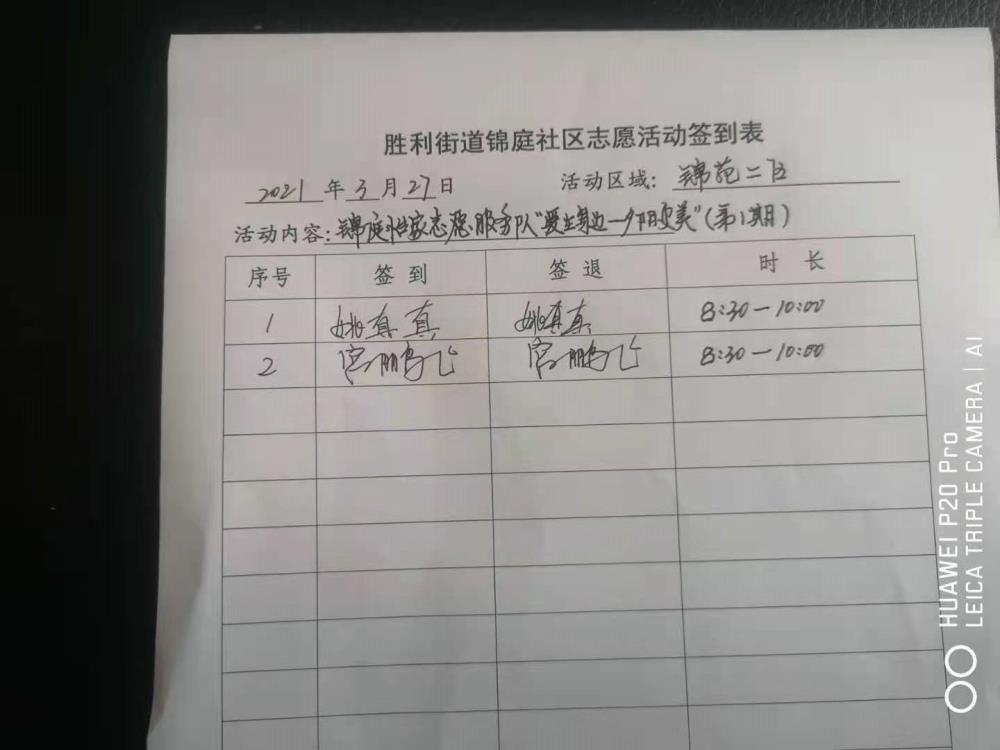 胜利街道锦庭社区志愿活动签到表
2021 年 3 月 27 日 活动区域: 锦苑二区
活动内容: 锦庭怡家志愿服务队"爱生身边一夕阳更美"(第1期)
序号 签到 签退 时 长
1 姚真真 姚真真 8:30-10:00
2 宫鹏飞 宫鹏飞 8:30-10:00
HUAWEI P20 Pro
LEICA TRIPLE CAMERA | AI